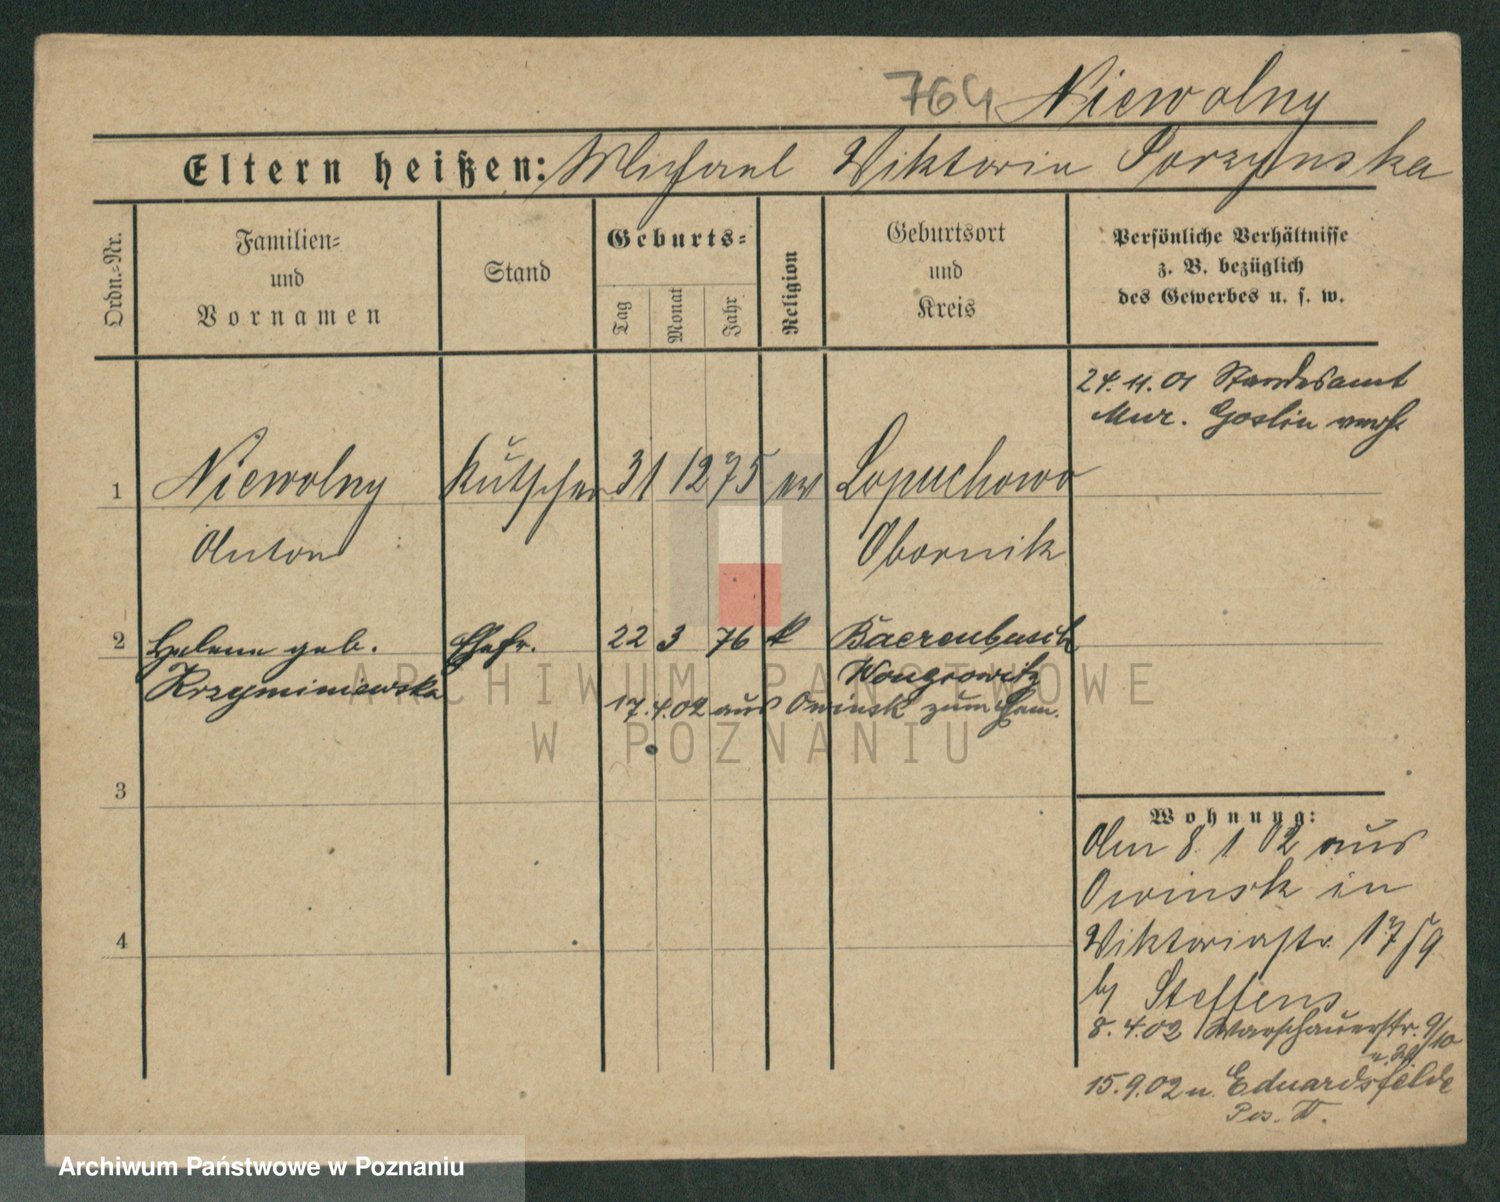 764 Niewolny
Eltern heißen: Michael Wiktoria Porzynska
Ordn.-Nr.
Familien-
und
Vornamen
Stand
Geburts-
Tag
Monat
Jahr
Religion
Geburtsort
und
Kreis
Persönliche Verhältnisse
z. B. bezüglich
des Gewerbes u. s. w.
24. 11. 01 Standesamt
Mur. Goslin verh.
1 Niewolny Kutscher 31 12 75 Lopuchowo
Anton Obornik
2 Helene geb. Ehefr. 22 3 76 k Baerenbusch
Krzyminiewska Wongrowitz
17. 4. 02 aus Owinsk zum Ehem.
3
4
Wohnung:
Am 8 1 02 aus
Owinsk in
Wiktoriastr. 17
b/ Steffens
8. 4. 02 Warschauerstr. 9/10
15. 9. 02 n. Eduardsfelde
Pos. II.
ARCHIWUM PAŃSTWOWE
W POZNANIU
Archiwum Państwowe w Poznaniu